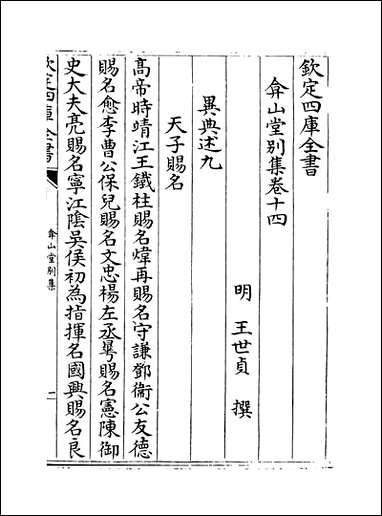 欽定四庫全書
弇山堂别集卷十四
明 王世貞 撰
異典述九
天子賜名
高帝時靖江王鐵柱賜名煒再賜名守謙鄧衞公友德
賜名愈李曹公保兒賜名文忠楊左丞𭥍賜名憲陳御
史大夫亮賜名寧江陰吳侯初為指揮名國興賜名良
欽定四庫全書
弇山堂别集